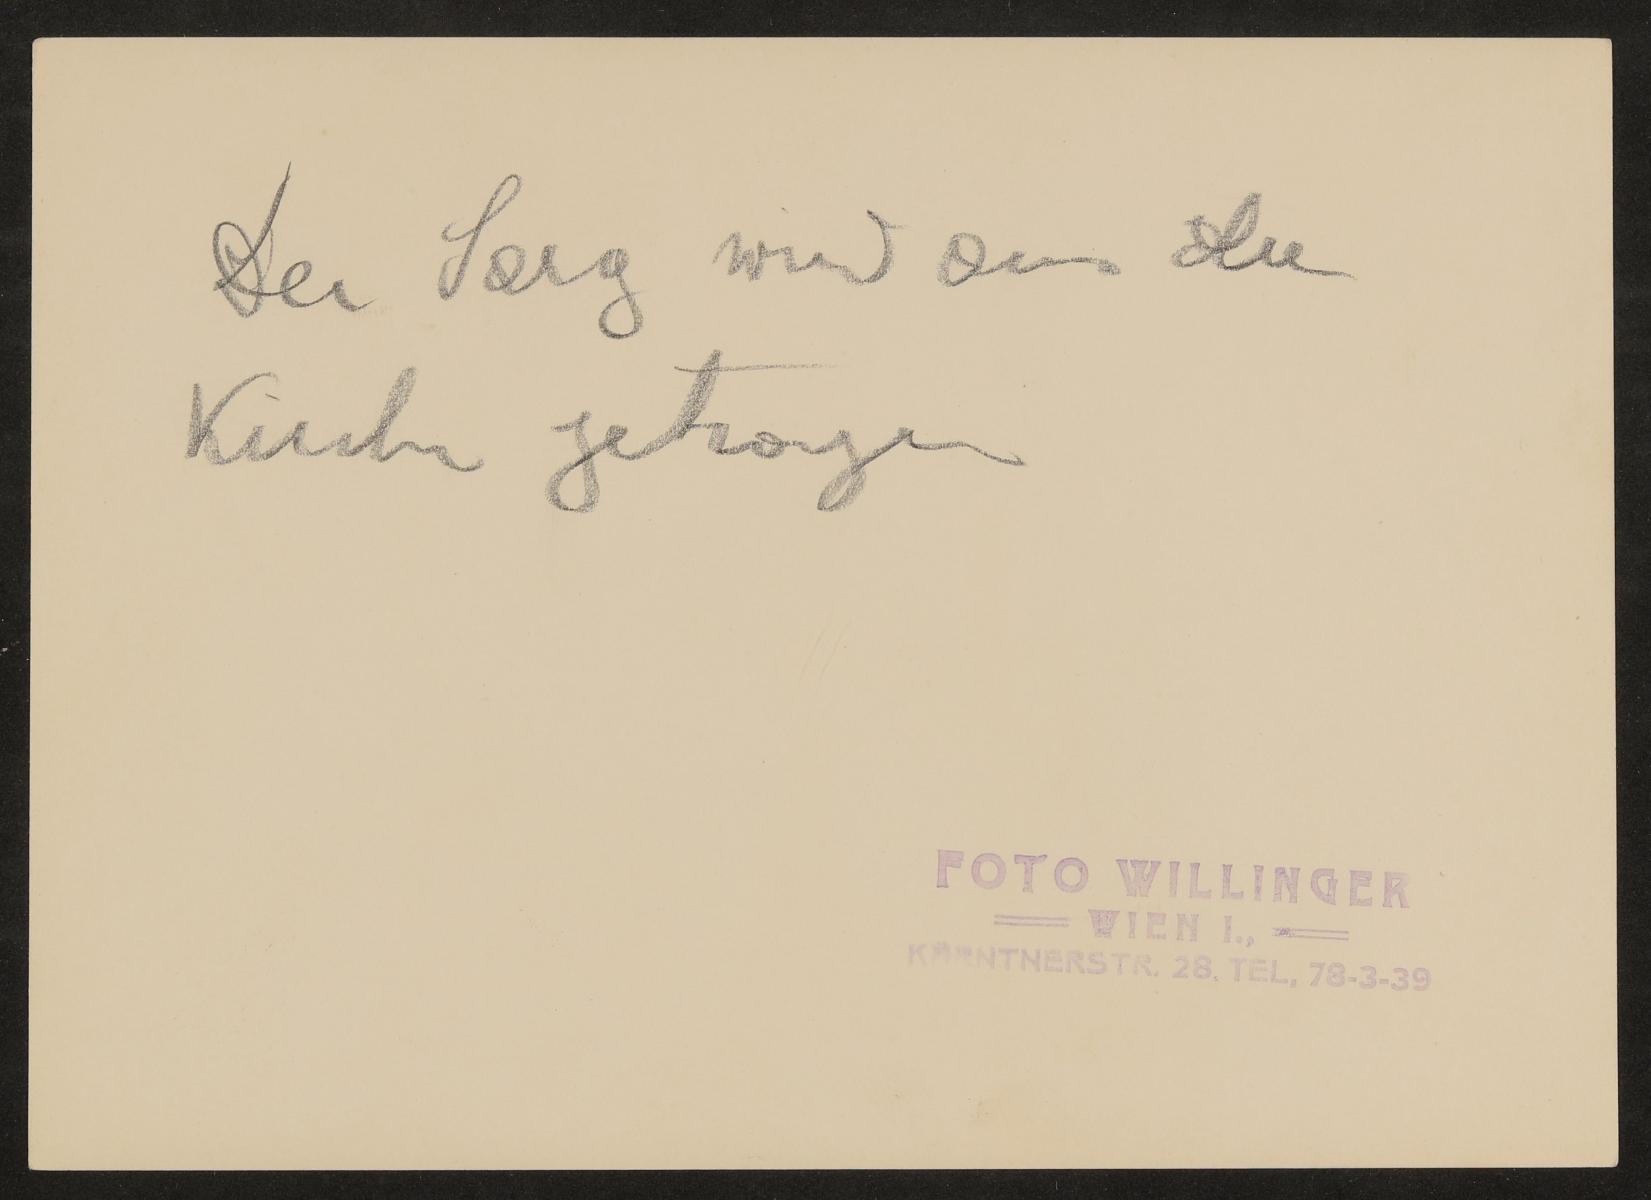 Der Sarg wird aus der
Kirche getragen
FOTO WILLINGER
WIEN I.,
KÄRNTNERSTR. 28. TEL, 78-3-39